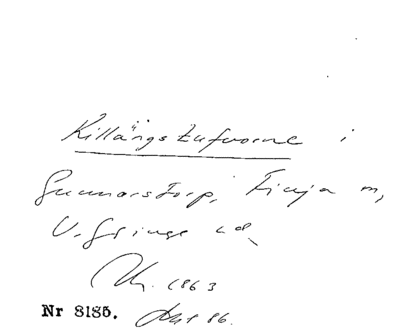 Killängstufvorne i
Gunnarstorp, Finja m,
V. Göinge
1863
Nr 8185. 86.